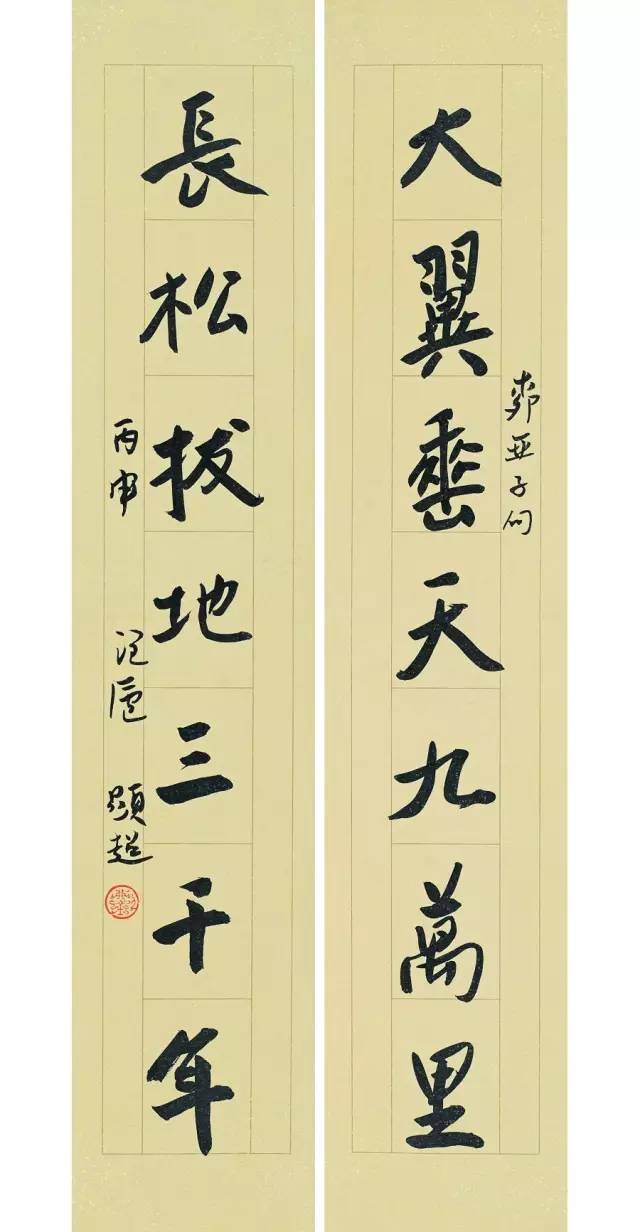 大翼垂天九萬里
柳亞子句
長松拔地三千年
丙申
滬
超